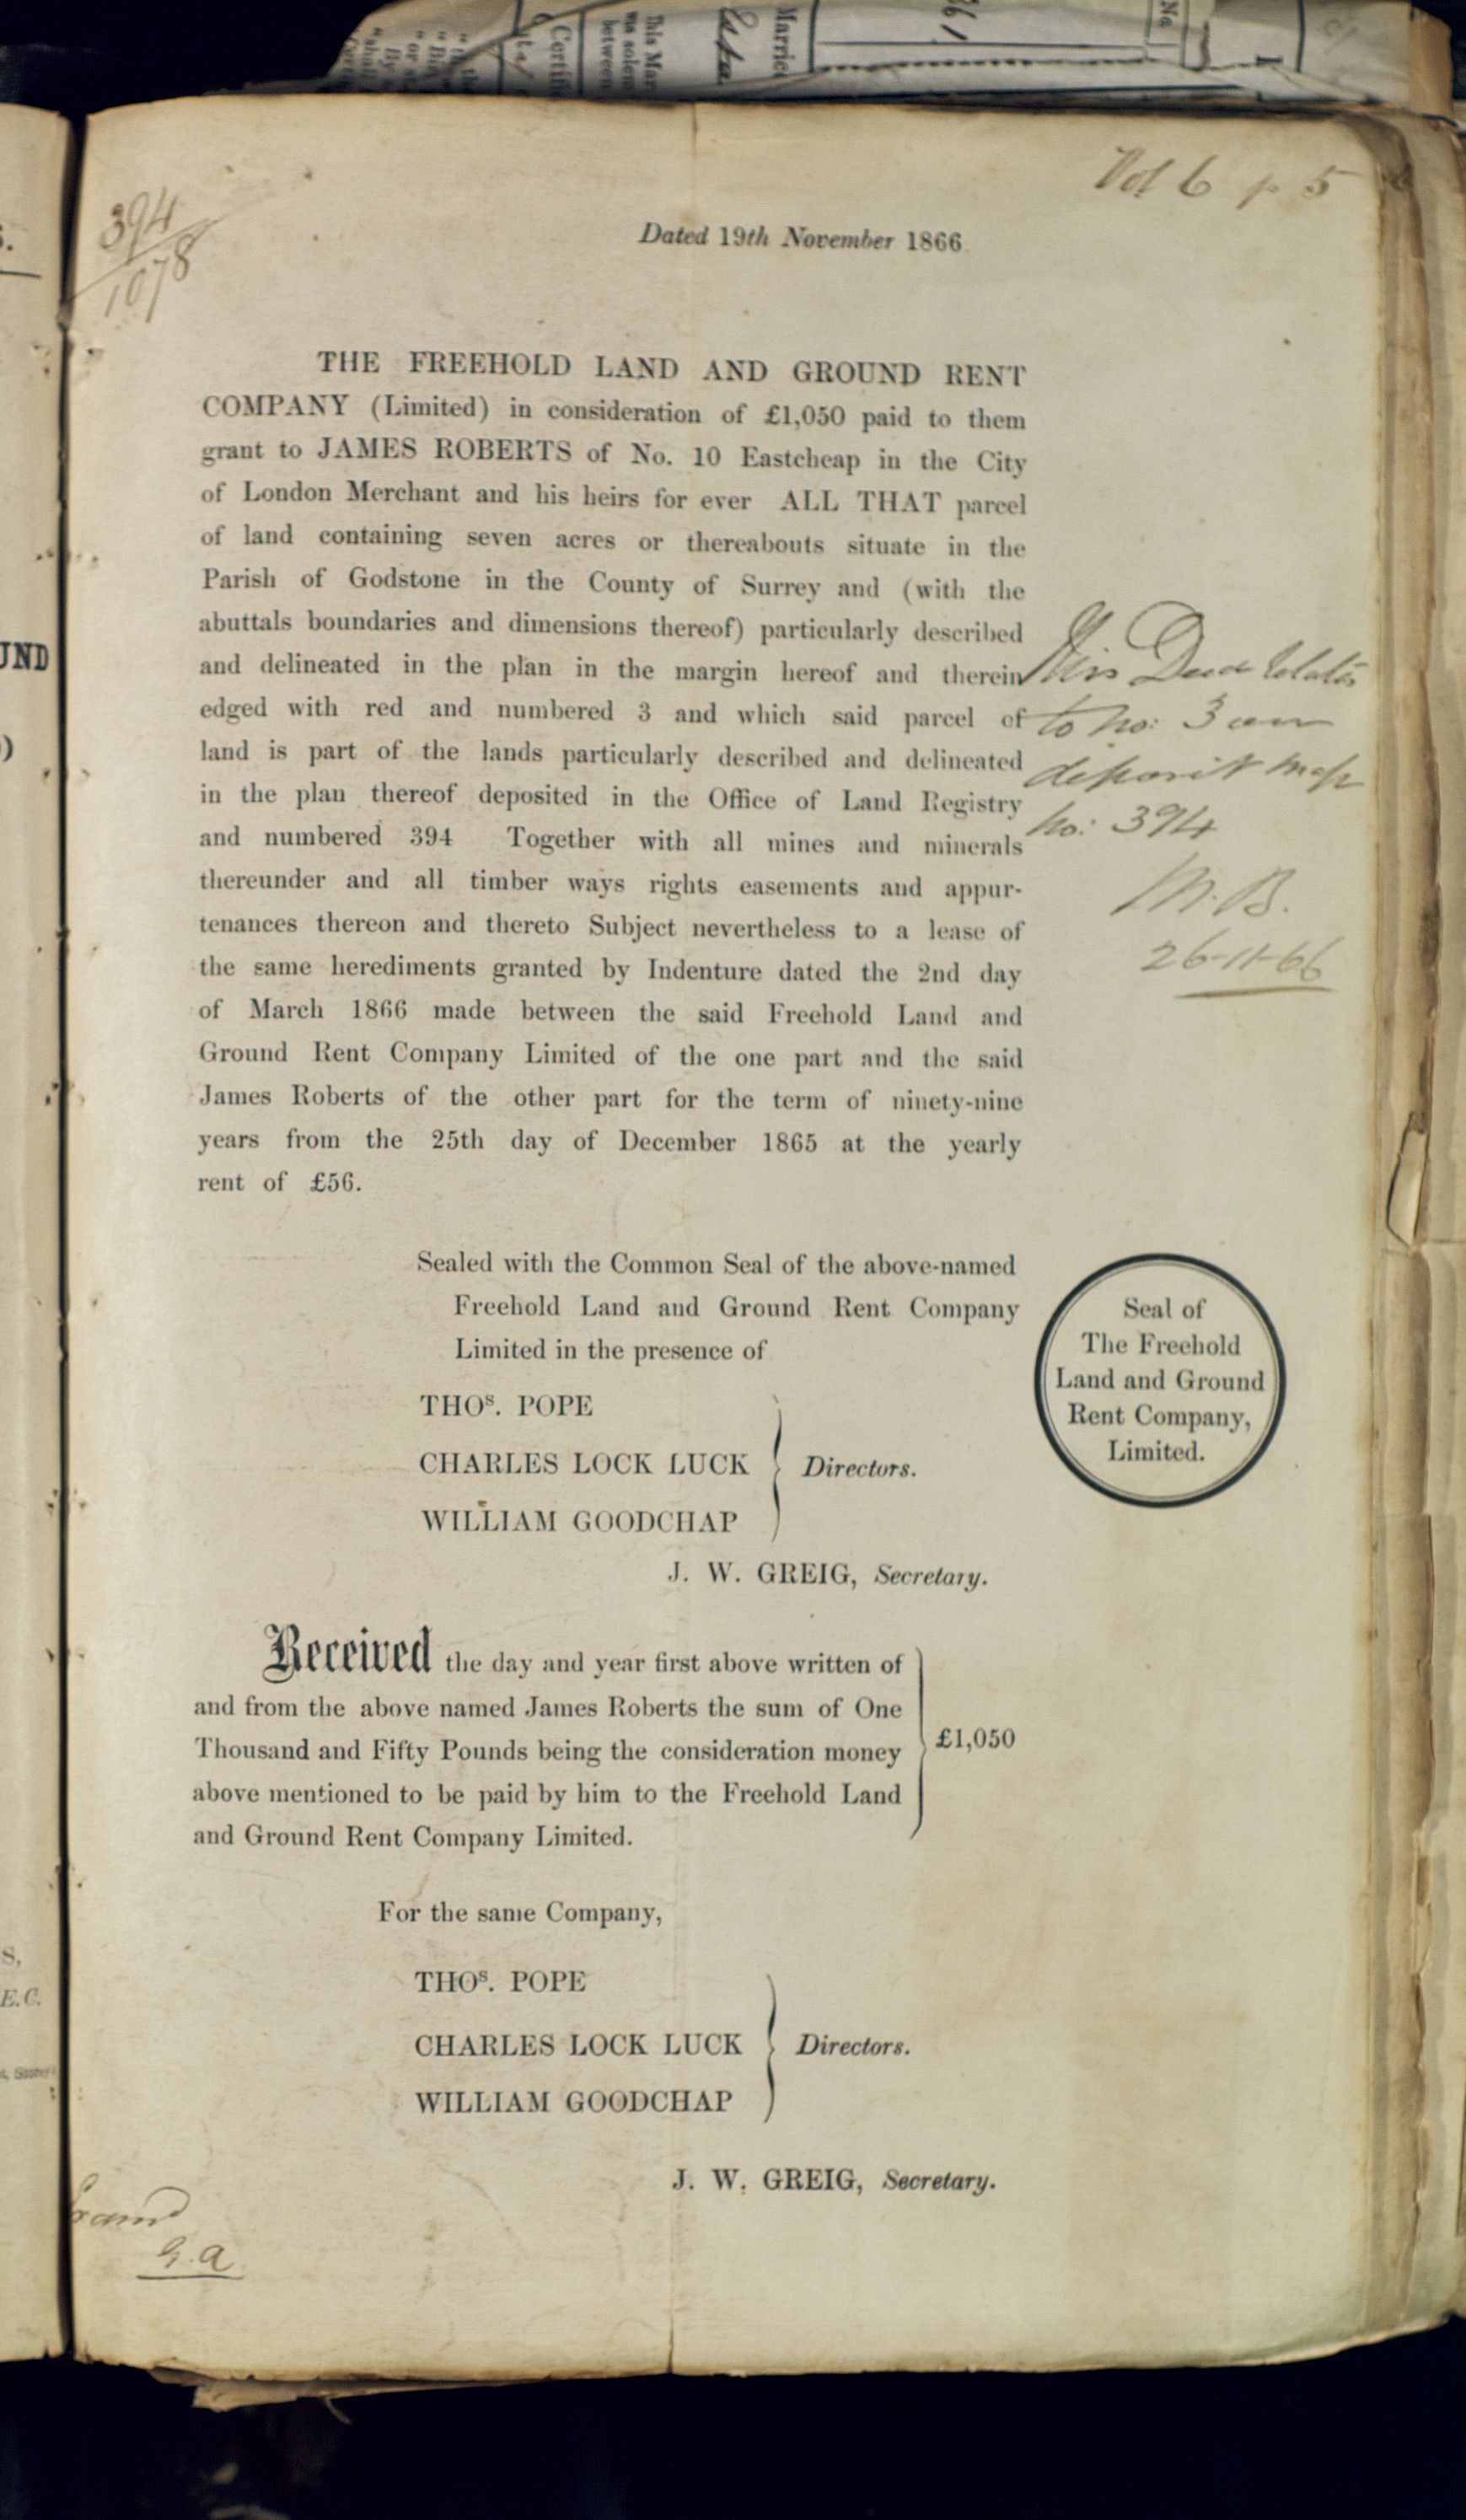 Vol 6 p 5
394
1078
Dated 19th November 1866
THE FREEHOLD LAND AND GROUND RENT
COMPANY (Limited) in consideration of £1,050 paid to them
grant to JAMES ROBERTS of No. 10 Eastcheap in the City
of London Merchant and his heirs for ever ALL THAT parcel
of land containing seven acres or thereabouts situate in the
Parish of Godstone in the County of Surrey and (with the
abuttals boundaries and dimensions thereof) particularly described
and delineated in the plan in the margin hereof and therein
edged with red and numbered 3 and which said parcel of
land is part of the lands particularly described and delineated
in the plan thereof deposited in the Office of Land Registry
and numbered 394 Together with all mines and minerals
thereunder and all timber ways rights easements and appur-
tenances thereon and thereto Subject nevertheless to a lease of
the same herediments granted by Indenture dated the 2nd day
of March 1866 made between the said Freehold Land and
Ground Rent Company Limited of the one part and the said
James Roberts of the other part for the term of ninety-nine
years from the 25th day of December 1865 at the yearly
rent of £56.
This Deed relates
to no: 3 on
deposit map
no: 394
M.B.
26-11-66
Sealed with the Common Seal of the above-named
Freehold Land and Ground Rent Company
Limited in the presence of
THOS. POPE
CHARLES LOCK LUCK
WILLIAM GOODCHAP
Directors.
J. W. GREIG, Secretary.
Seal of
The Freehold
Land and Ground
Rent Company,
Limited.
Received the day and year first above written of
and from the above named James Roberts the sum of One
Thousand and Fifty Pounds being the consideration money
above mentioned to be paid by him to the Freehold Land
and Ground Rent Company Limited.
£1,050
For the same Company,
THOS. POPE
CHARLES LOCK LUCK
WILLIAM GOODCHAP
Directors.
J. W. GREIG, Secretary.
UND
E.C.